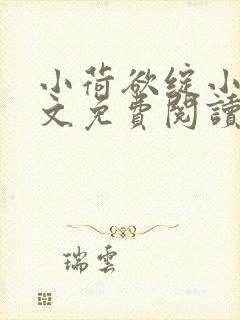 小荷欲綻小
文免費閱讀
瑞雲